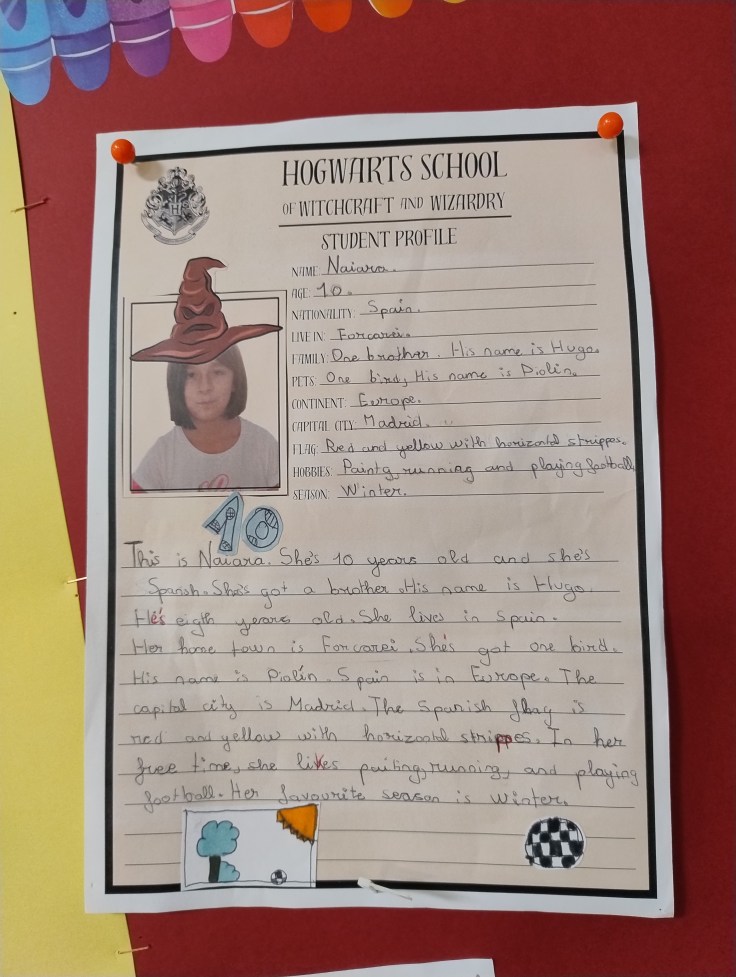 HOGWARTS SCHOOL
OF WITCHCRAFT AND WIZARDRY
STUDENT PROFILE
NAME: Naiara.
AGE: 10.
NATIONALITY: Spain.
LIVE IN: Forcarei.
FAMILY: One brother. His name is Hugo.
PETS: One bird, His name is Piolín.
CONTINENT: Europe.
CAPITAL CITY: Madrid.
FLAG: Red and yellow with horizontal strippes.
HOBBIES: Paintg, running and playing football
SEASON: Winter.
10
This is Naiara. She's 10 years old and she's
Spanish. She's got a brother. His name is Hugo.
He's eigth years old. She lives in Spain.
Her home town is Forcarei. She's got one bird.
His name is Piolín. Spain is in Europe. The
capital city is Madrid. The Spanish flag is
red and yellow with horizontal strippes. In her
free time, she likes paiting, running, and playing
football. Her favourite season is winter.